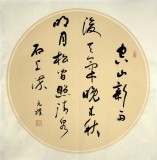 空山新雨
後天氣晚来秋
明月松間照清泉
石上流